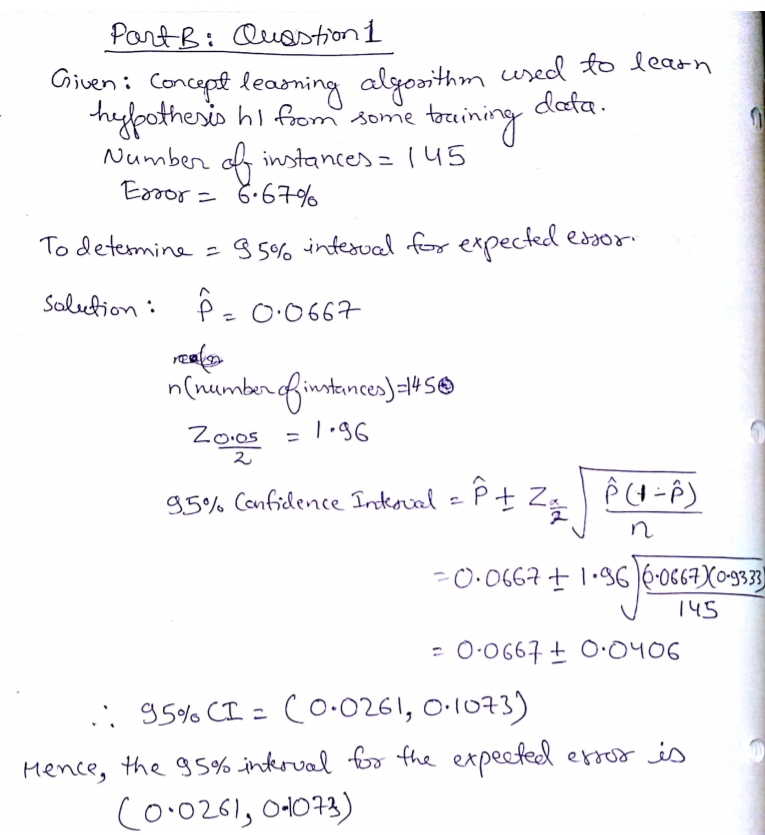 Part B: Question 1
Given: Concept learning algorithm used to learn
hypothesis h1 from some training data.
Number of instances = 145
Error = 6.67%
To determine = 95% interval for expected error.
Solution: P̂ = 0.0667
n(number of instances)=145
Z0.05/2 = 1.96
95% Confidence Interval = P̂ ± Zα/2 √(P̂(1-P̂)/n)
= 0.0667 ± 1.96 √((0.0667)(0.9333)/145)
= 0.0667 ± 0.0406
∴ 95% CI = (0.0261, 0.1073)
Hence, the 95% interval for the expected error is
(0.0261, 0.1073)